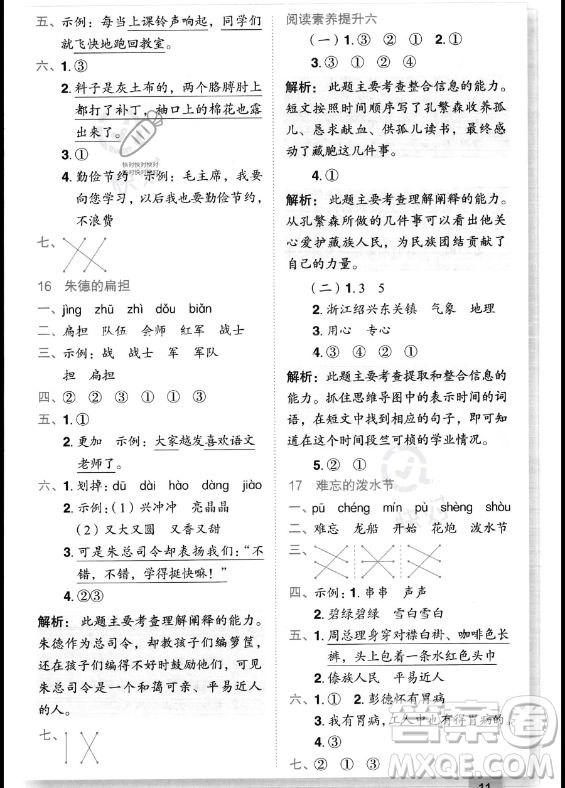 五、示例：每当上课铃声响起，同学们
就飞快地跑回教室。
六、1.③
2.料子是灰土布的，两个胳膊肘上
都打了补丁，袖口上的棉花也露
出来了。
3.②①
4.勤俭节约 示例：毛主席，我要
向您学习，以后我也勤俭节约，
不浪费
七、
16 朱德的扁担
一、jìng zhū zhì dǒu biǎn
二、扁担 队伍 会师 红军 战士
三、示例：战 战士 军 军队
担 扁担
四、② ② ③ ① ③
五、1.①
2.更加 示例：大家越发喜欢语文
老师了。
六、1.划掉：dū dài hào dàng jiào
2.示例：（1）兴冲冲 亮晶晶
（2）又大又圆 又香又甜
3.可是朱总司令却表扬我们：“不
错，不错，学得挺快嘛！”
4.②③
解析：此题主要考查理解阐释的能力。
朱德作为总司令，却教孩子们编箩筐，
还在孩子们编不好时鼓励他们，可见
朱总司令是一个和蔼可亲、平易近人
的人。
七、
阅读素养提升六
（一）1.③ ② 2.①
3.③ ① ② ④
解析：此题主要考查整合信息的能力。
短文按照时间顺序写了孔繁森收养孤
儿、恳求献血、供孤儿读书，最终感
动了藏胞这几件事。
4.②
解析：此题主要考查理解阐释的能力。
从孔繁森所做的几件事可以看出他关
心爱护藏族人民，为他们贡献了
自己的力量。
（二）1.3 5
2.浙江绍兴东关镇 气象 地理
3.用心 专心
4.③ ④ ② ①
解析：此题主要考查提取和整合信息的
能力。抓住思维导图中的表示时间的词
语，在短文中找到相应的句子，即可找
出在这个时间段竺可桢的学业情况。
5.② ①
17 难忘的泼水节
一、pū chéng mín pù shèng shòu
二、难忘 龙船 开始 花炮 泼水节
三、
四、示例：1.串串 声声
2.碧绿碧绿 雪白雪白
五、1.周总理身穿对襟白褂、咖啡色长
裤，头上包着一条水红色头巾
2.傣族人民 平易近人
六、1.① ① 2.彭德怀有胃病
3.我有胃病，工人中也有得胃病的。
4.③
七、② ① ③ ④
快对快对快对
快对快对快对
答案圈
MXQE.COM
11